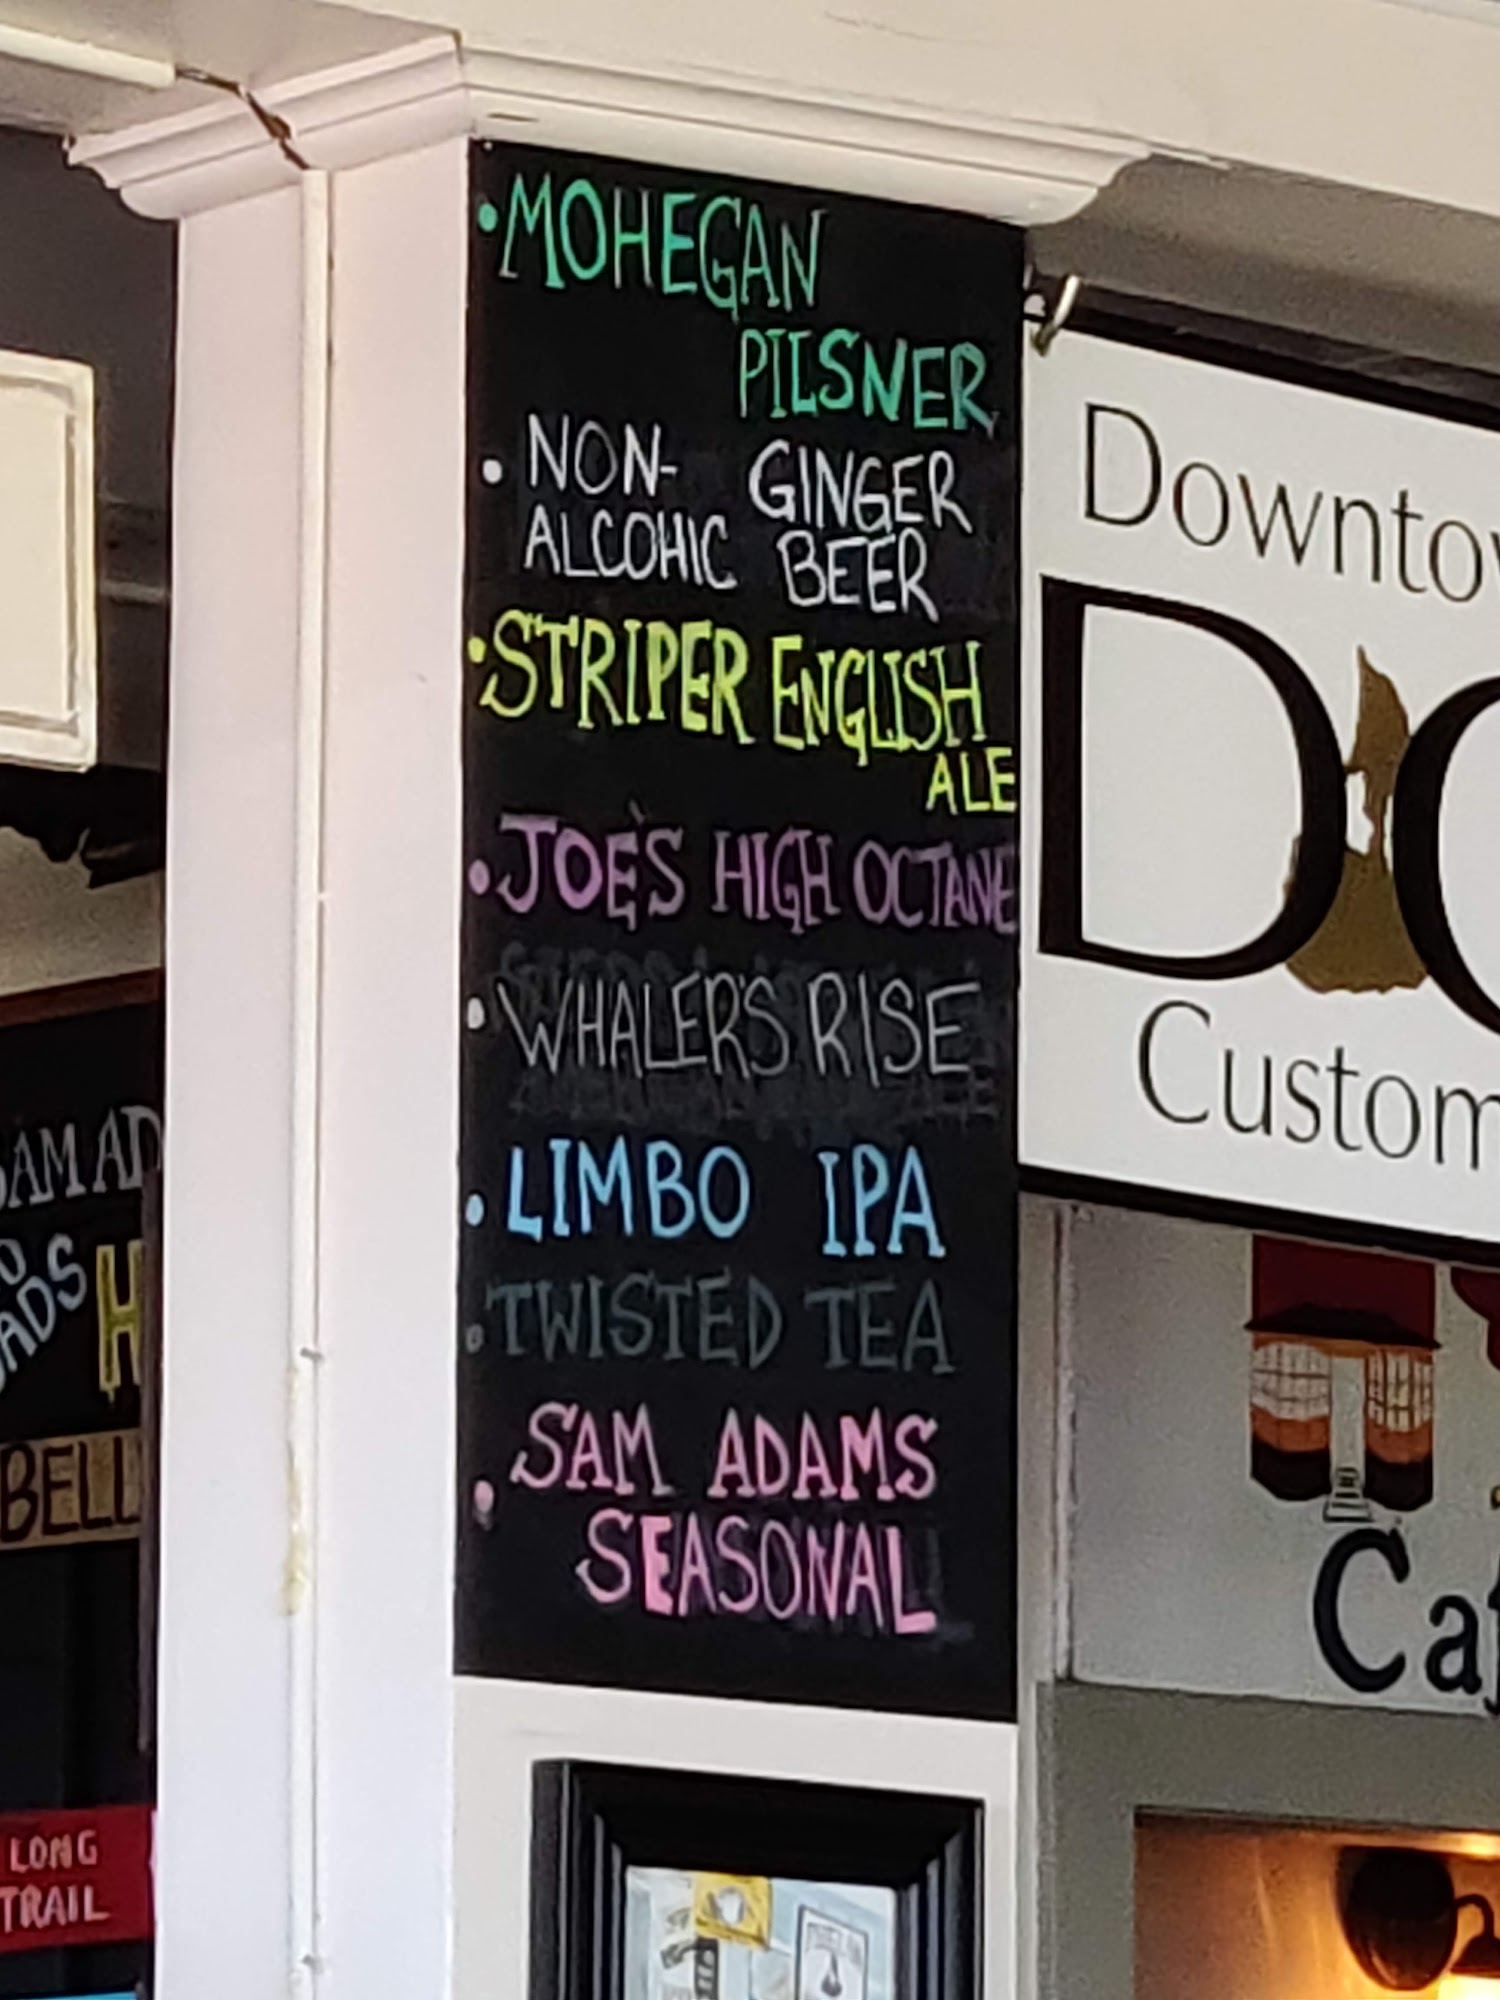 • MOHEGAN
PILSNER
• NON- GINGER
ALCOHIC BEER
• STRIPER ENGLISH
ALE
• JOE'S HIGH OCTANE
• WHALER'S RISE
• LIMBO IPA
• TWISTED TEA
• SAM ADAMS
SEASONAL
Downtow
Custom
Caf
SAM AD
ADS H
BELL
LONG
TRAIL